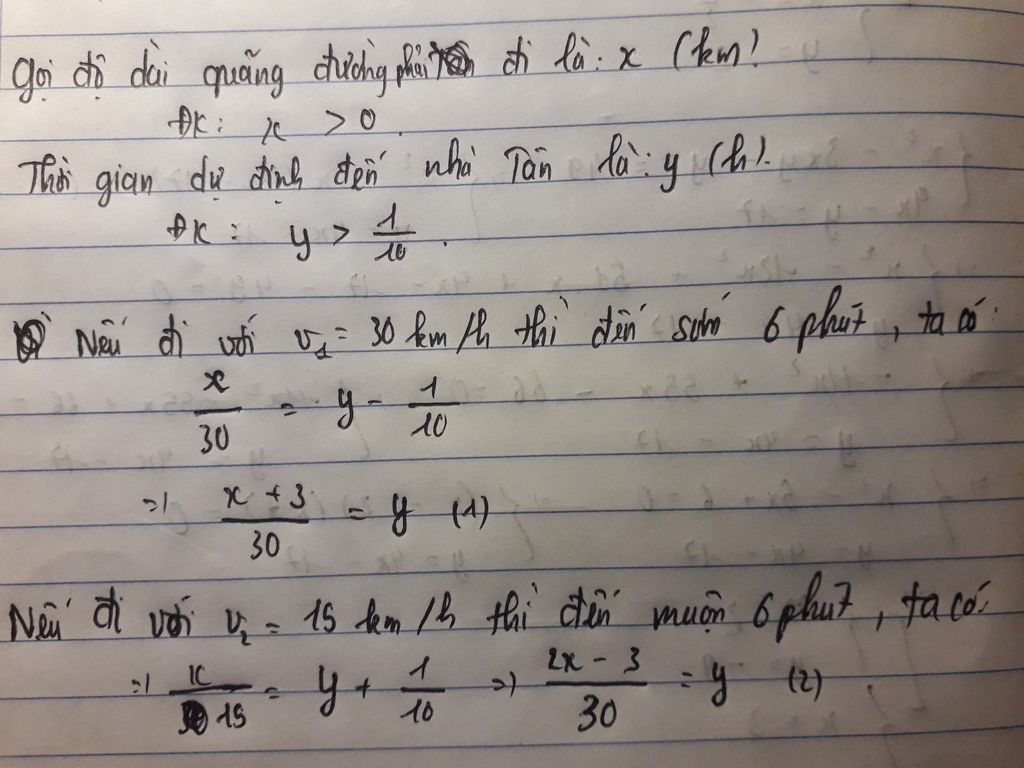 Gọi độ dài quãng đường phải đi là: x (km)
ĐK: x > 0.
Thời gian dự định đến nhà Tân là: y (h).
ĐK: y > 1/10.
Nếu đi với v₁ = 30 km/h thì đến sớm 6 phút, ta có:
x/30 = y - 1/10
=> (x + 3)/30 = y (1)
Nếu đi với v₂ = 15 km/h thì đến muộn 6 phút, ta có:
=> x/15 = y + 1/10 => (2x - 3)/30 = y (2).